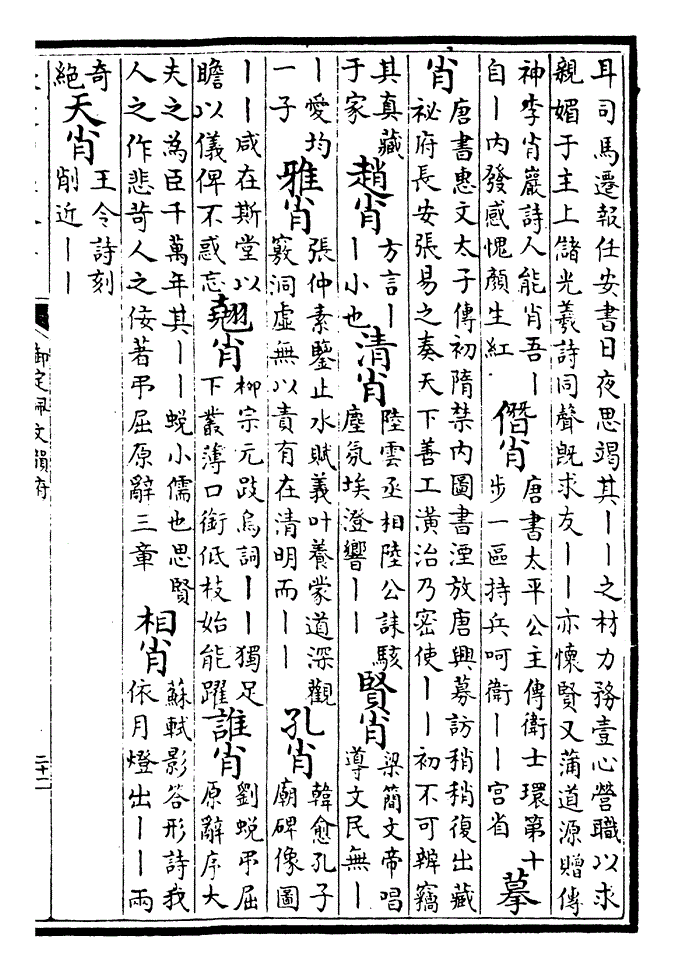 耳司馬遷報任安書日夜思竭其丨丨之材力務壹心營職以求
親媚于主上儲光羲詩同聲既求友丨丨亦懷賢又蒲道源贈傳
神李肖巖詩人能肖吾丨
自丨内發感愧顔生紅
僭肖
唐書太平公主傳衛士環第十
步一區持兵呵衛丨丨宮省
摹
肖
唐書惠文太子傳初隋禁内圖書湮放唐興募訪稍稍復出藏
祕府長安張易之奏天下善工潢治乃密使丨丨初不可辨竊
其真藏
于家
趙肖
方言丨
丨小也
清肖
陸雲丞相陸公誄駭
塵氛埃澄響丨丨
賢肖
梁簡文帝唱
導文民無丨
丨愛均
一子
雅肖
張仲素鑒止水賦義叶養蒙道深觀
竅洞虛無以責有在清明而丨丨
孔肖
韓愈孔子
廟碑像圖
丨丨咸在斯堂以
瞻以儀俾不惑忘
翹肖
柳宗元跂烏詞丨丨獨足
下叢薄口銜低枝始能躍
誰肖
劉蛻弔屈
原辭序大
夫之為臣千萬年其丨丨蛻小儒也思賢
人之作悲苛人之佞若弔屈原辭三章
相肖
蘇軾影答形詩我
依月燈出丨丨兩
奇
絶
天肖
王令詩刻
削近丨丨
御定佩文韻府
二十二